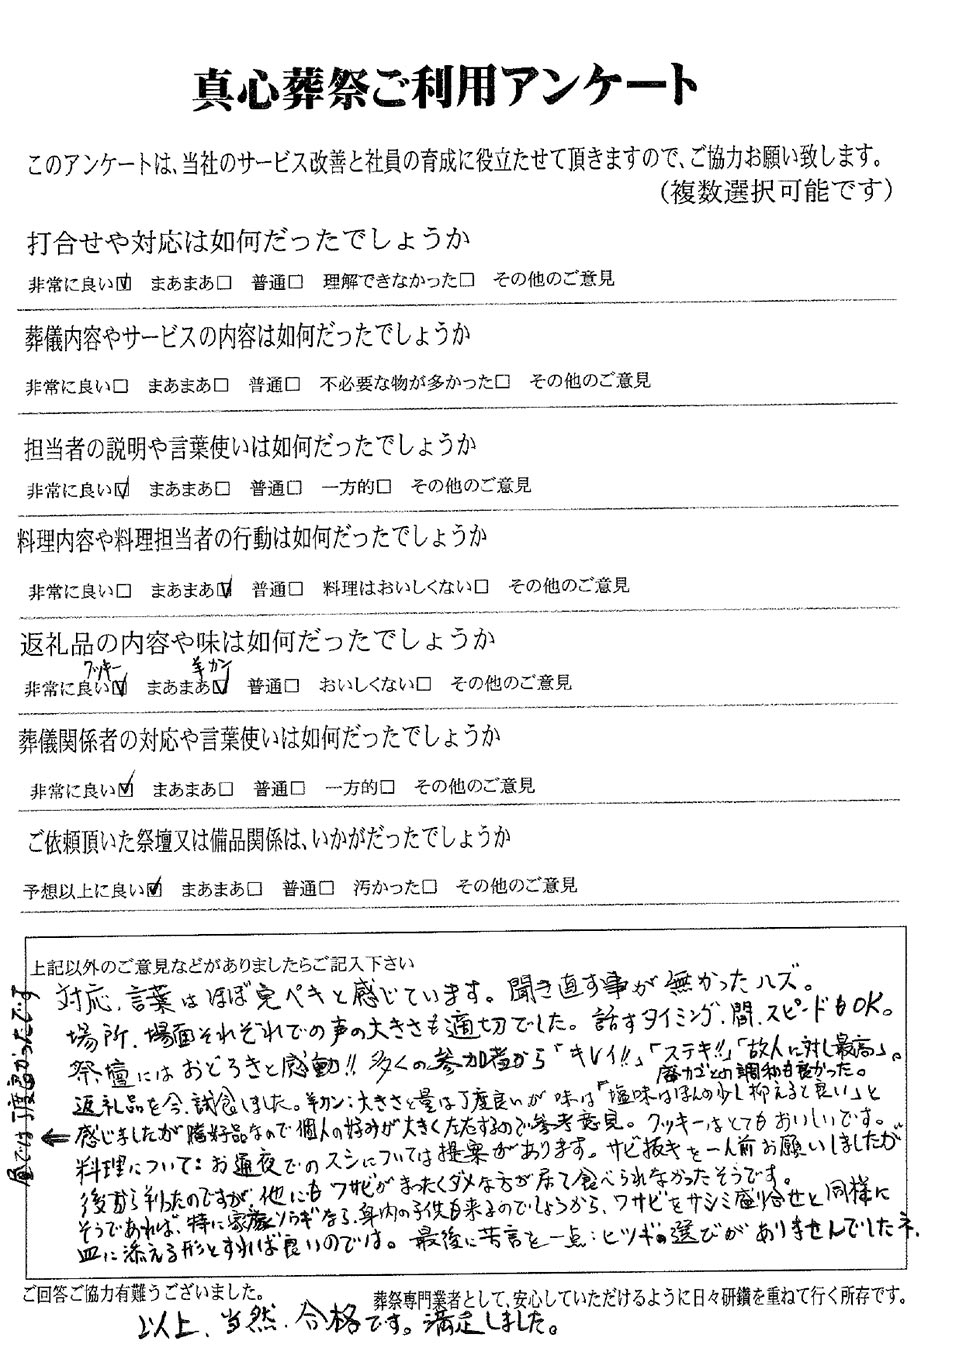 真心葬祭ご利用アンケート
このアンケートは、当社のサービス改善と社員の育成に役立たせて頂きますので、ご協力お願い致します。
(複数選択可能です)
打合せや対応は如何だったでしょうか
非常に良い☑ まあまあ□ 普通□ 理解できなかった□ その他のご意見
葬儀内容やサービスの内容は如何だったでしょうか
非常に良い□ まあまあ□ 普通□ 不必要な物が多かった□ その他のご意見
担当者の説明や言葉使いは如何だったでしょうか
非常に良い☑ まあまあ□ 普通□ 一方的□ その他のご意見
料理内容や料理担当者の行動は如何だったでしょうか
非常に良い□ まあまあ☑ 普通□ 料理はおいしくない□ その他のご意見
返礼品の内容や味は如何だったでしょうか
クッキー 羊カン
非常に良い☑ まあまあ☑ 普通□ おいしくない□ その他のご意見
葬儀関係者の対応や言葉使いは如何だったでしょうか
非常に良い☑ まあまあ□ 普通□ 一方的□ その他のご意見
ご依頼頂いた祭壇又は備品関係は、いかがだったでしょうか
予想以上に良い☑ まあまあ□ 普通□ 汚かった□ その他のご意見
上記以外のご意見などがありましたらご記入下さい
対応、言葉はほぼ完ペキと感じています。聞き直す事が無かったハズ。
場所、場面それぞれでの声の大きさも適切でした。話すタイミング、間、スピードもOK。
祭壇にはおどろきと感動!! 多くの参加者から「キレイ!!」「ステキ!!」「故人に対し最高」。
の調和も良かった。
返礼品を今、試食しました。羊カン:大きさと量は丁度良いが味は「塩味はほんの少し抑えると良い」と
← 感じましたが嗜好品なので個人の好みが大きく左右するので参考意見。クッキーはとてもおいしいです。
量では丁度良かったです
料理について:お通夜でのスシについては提案があります。サビ抜きを一人前お願いしましたが
後から判ったのですが、他にもワサビがまったくダメな方が居て食べられなかったそうです。
そうであれば、特に家族ソウギなら、身内の子供も来るのでしょうから、ワサビをサシミ盛り合せと同様に
皿に添える形とすれば良いのでは。最後に苦言を一点:ヒツギの選びがありませんでしたネ。
ご回答ご協力有難うございました。
葬祭専門業者として、安心していただけるように日々研鑽を重ねて行く所存です。
以上、当然、合格です。満足しました。